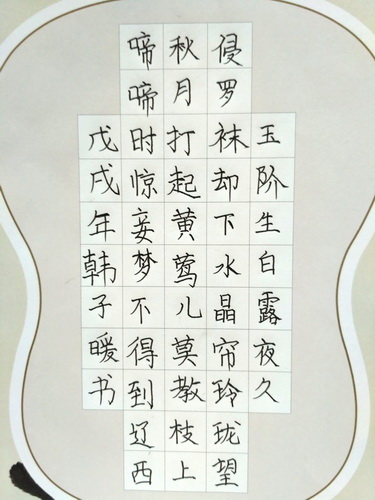 玉阶生白露夜久
侵罗袜却下水晶帘玲珑望
秋月打起黄莺儿莫教枝上
啼啼时惊妾梦不得到辽西
戊戌年韩子暖书